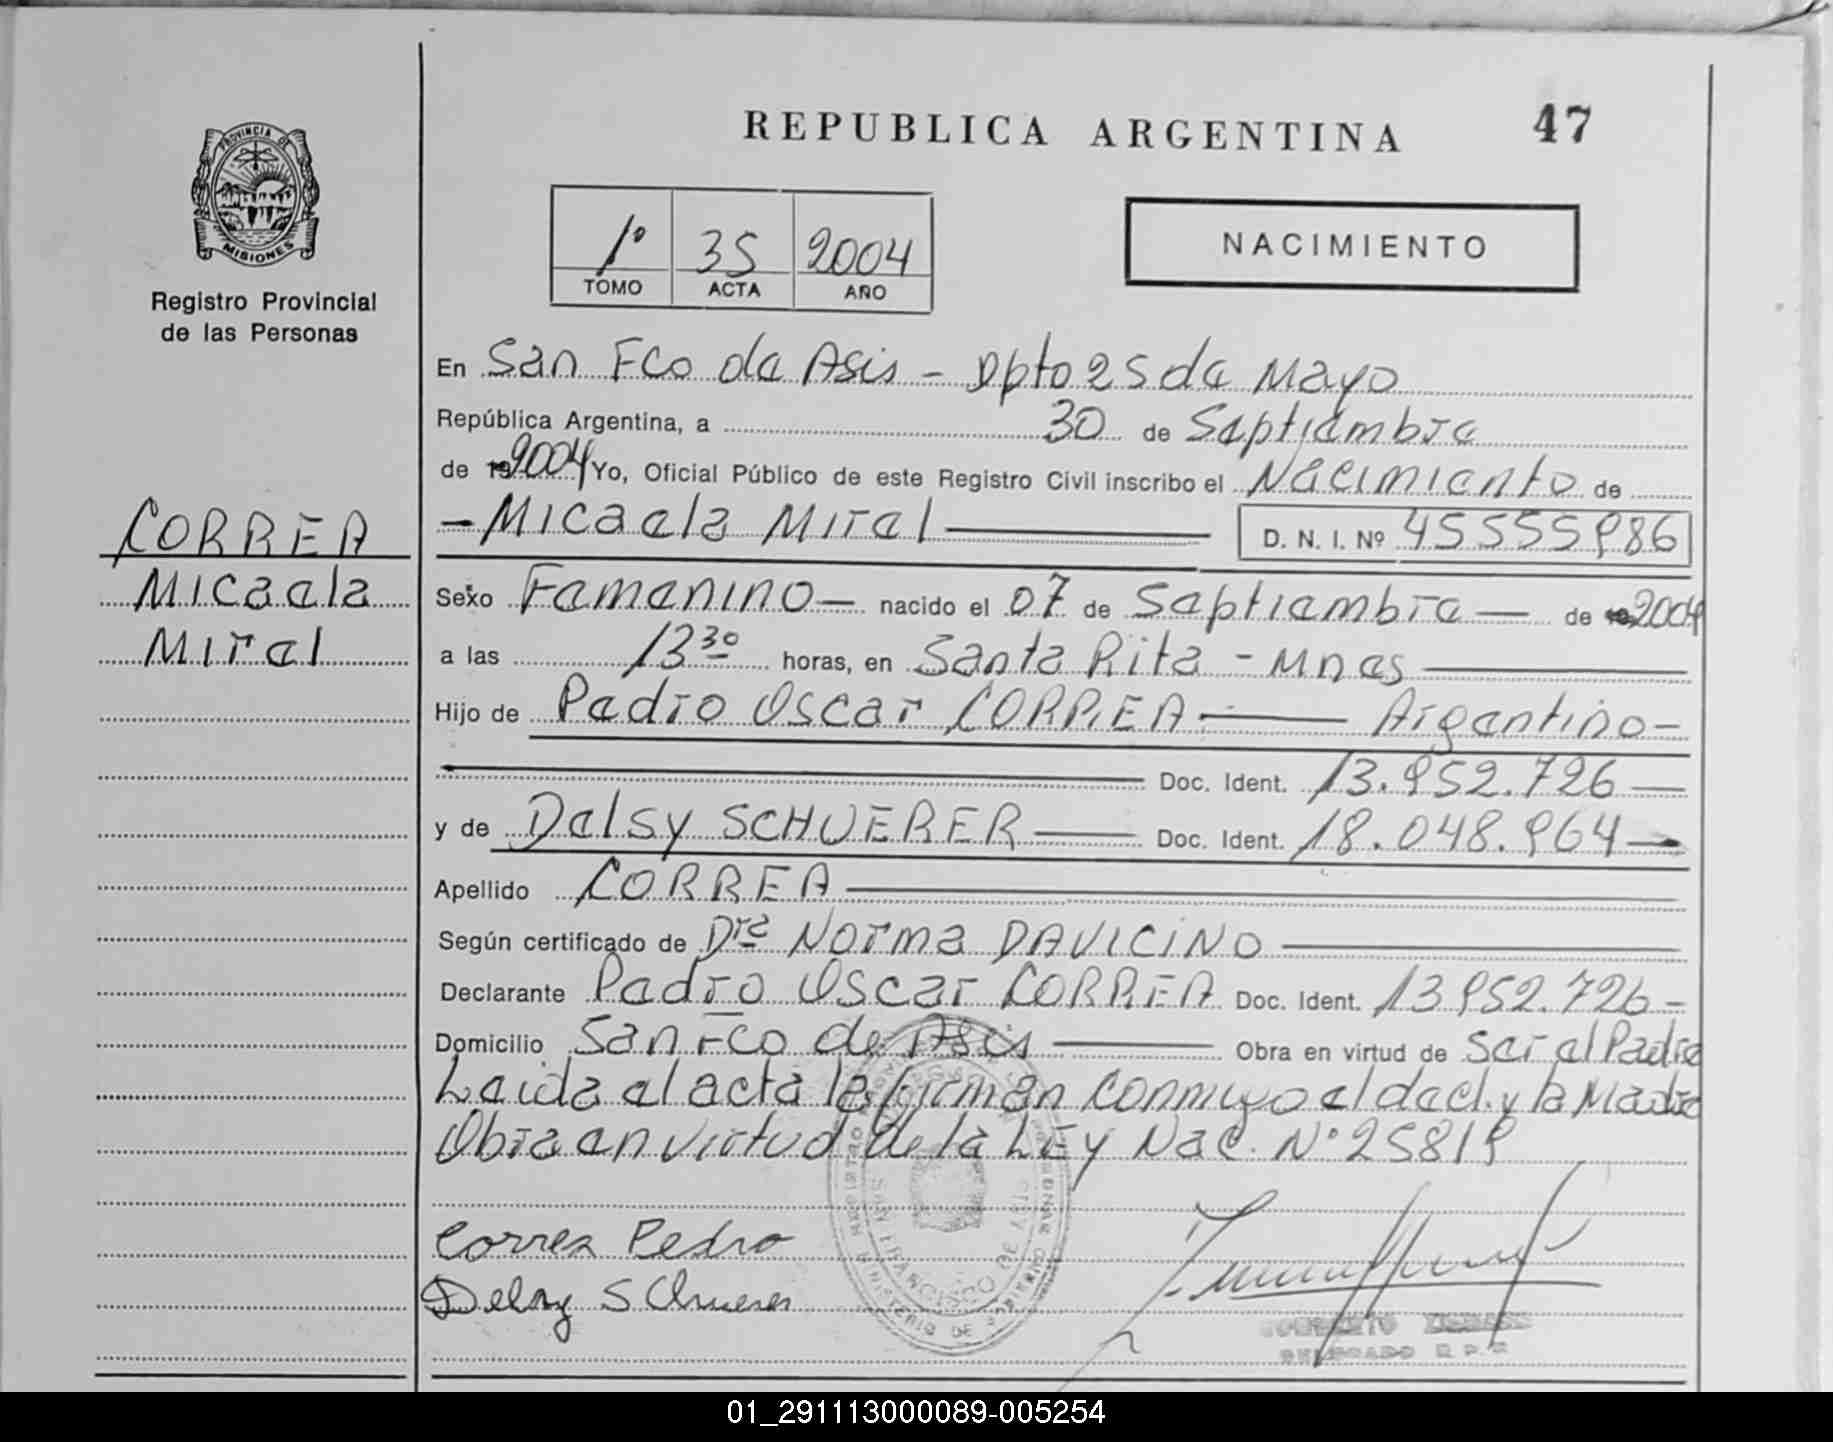 REPUBLICA ARGENTINA
47
PROVINCIA DE
MISIONES
Registro Provincial
de las Personas
1º 35 2004
TOMO ACTA AÑO
NACIMIENTO
En San Fco de Asis - Dpto 25 de Mayo
República Argentina, a 30 de Septiembre
de 2004 Yo, Oficial Público de este Registro Civil inscribo el Nacimiento de
- Micaela Mirel D. N. I. Nº 45555986
CORREA
Micaela
Mirel
Sexo Femenino - nacido el 07 de Septiembre - de 2004
a las 13 30 horas, en Santa Rita - Mnes
Hijo de Pedro Oscar CORREA - Argentino -
Doc. Ident. 13.952.726 -
y de Delsy SCHUERER - Doc. Ident. 18.048.964 -
Apellido CORREA
Según certificado de Dra Norma DAVICINO
Declarante Pedro Oscar CORREA Doc. Ident. 13952.726 -
Domicilio San Fco de Asis - Obra en virtud de Ser el Padre
Leida el acta la firman Conmigo el decl. y la Madre
Obra en virtud de la LEy Nac. Nº 25819
Correa Pedro
Delsy SChuerer
SAN FRANCISCO DE
MINISTERIO DE
DELEGADO R. P. P.
01_291113000089-005254